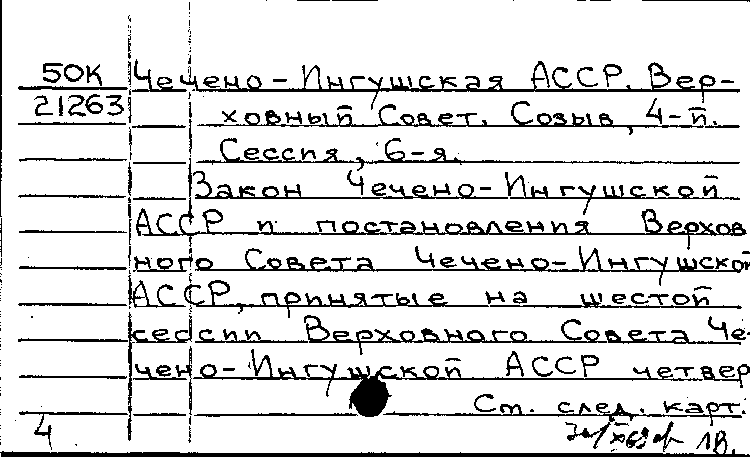 50К Чечено-Ингушская АССР. Вер-
21263 ховный Совет. Созыв, 4-й.
Сессия, 6-я.
Закон Чечено-Ингушской
АССР и постановления Верхов
ного Совета Чечено-Ингушской
АССР, принятые на шестой
сессии Верховного Совета Че-
чено-Ингушской АССР четвер
См. след. карт.
4 1В.